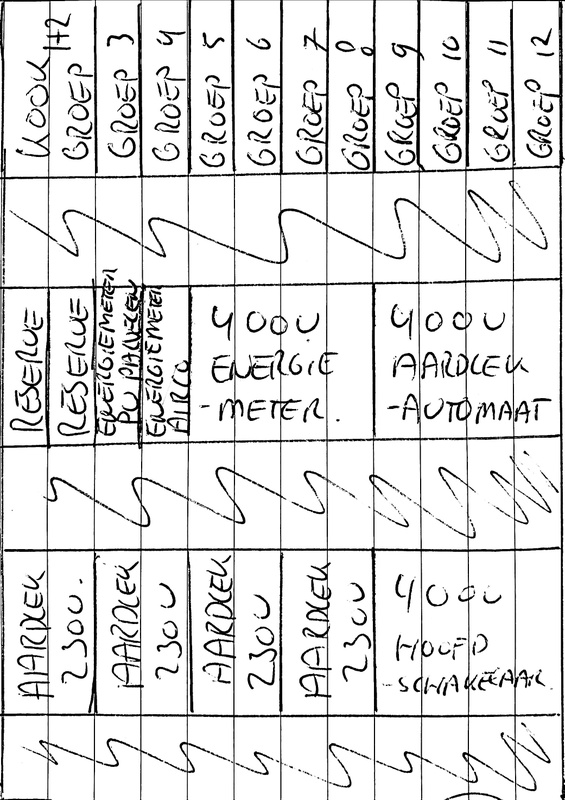 KOOK
GROEP 1+2
GROEP 3
GROEP 4
GROEP 5
GROEP 6
GROEP 7
GROEP 8
GROEP 9
GROEP 10
GROEP 11
GROEP 12
RESERVE
RESERVE
ENERGIEMETER
PV PANELEN
ENERGIEMETER
AIRCO
400V
ENERGIE
-METER.
400V
AARDLEK
-AUTOMAAT
AARDLEK
230V.
AARDLEK
230V
AARDLEK
230V
AARDLEK
230V
400V
HOOFD
-SCHAKELAAR